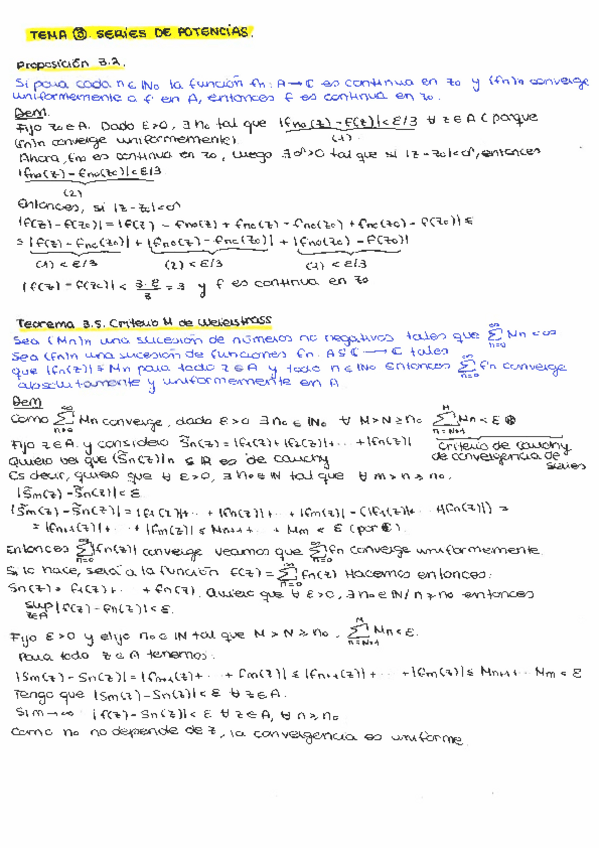 TEMA ③. SERIES DE POTENCIAS.
Proposición 3.2.
Si para cada n ∈ ℕ₀ la función fn: A → ℂ es continua en z₀ y (fn)n converge
uniformemente a f en A, entonces f es continua en z₀.
Dem.
Fijo z₀ ∈ A. Dado ε>0, ∃ n₀ tal que |fn₀(z) - f(z)| < ε/3 ∀ z ∈ A (porque
(fn)n converge uniformemente).
(1)
Ahora, fn₀ es continua en z₀, luego ∃ δ>0 tal que si |z - z₀| < δ, entonces
|fn₀(z) - fn₀(z₀)| < ε/3
(2)
Entonces, si |z - z₀| < δ
|f(z) - f(z₀)| = |f(z) - fn₀(z) + fn₀(z) - fn₀(z₀) + fn₀(z₀) - f(z₀)| ≤
≤ |f(z) - fn₀(z)| + |fn₀(z) - fn₀(z₀)| + |fn₀(z₀) - f(z₀)|
(1) < ε/3 (2) < ε/3 (1) < ε/3
|f(z) - f(z₀)| < 3·ε/3 = 3 y f es continua en z₀
Teorema 3.5. Criterio M de Weierstrass
Sea (Mn)n una sucesión de números no negativos tales que ∑_{n=0}^∞ Mn < ∞
Sea (fn)n una sucesión de funciones fn: A ⊆ ℂ → ℂ tales
que |fn(z)| ≤ Mn para todo z ∈ A y todo n ∈ ℕ₀ Entonces ∑_{n=0}^∞ fn converge
absolutamente y uniformemente en A
Dem
Como ∑_{n=0}^∞ Mn converge, dado ε>0 ∃ n₀ ∈ ℕ₀ ∀ M>N≥n₀ ∑_{n=N+1}^M Mn < ε ⊛
Fijo z ∈ A. y considero S̃n(z) = |f₁(z)| + |f₂(z)| + ... + |fn(z)|
Criterio de Cauchy
Quiero ver que (S̃n(z))n ⊆ ℝ es de Cauchy
de convergencia de series
Es decir, quiero que ∀ ε>0, ∃ n₀ ∈ ℕ tal que ∀ m>n≥n₀.
|S̃m(z) - S̃n(z)| < ε.
|S̃m(z) - S̃n(z)| = |f₁(z)| + ... + |fn(z)| + ... + |fm(z)| - (|f₁(z)| + ... + |fn(z)|) =
= |fn+1(z)| + ... + |fm(z)| ≤ Mn+1 + ... Mm < ε (por ⊛).
Entonces ∑_{n=0}^∞ |fn(z)| converge veamos que ∑_{n=0}^∞ fn converge uniformemente.
Si lo hace, será a la función f(z) = ∑_{n=0}^∞ fn(z) Hacemos entonces:
Sn(z) = f₁(z) + ... + fn(z). Quiero que ∀ ε>0, ∃ n₀ ∈ ℕ / n≥n₀ entonces
sup_{z∈A} |f(z) - fn(z)| < ε.
Fijo ε>0 y elijo n₀ ∈ ℕ tal que M>N≥n₀, ∑_{n=N+1}^M Mn < ε.
Para todo z ∈ A tenemos:
|Sm(z) - Sn(z)| = |fn+1(z) + ... + fm(z)| ≤ |fn+1(z)| + ... + |fm(z)| ≤ Mn+1 ... Mm < ε
Tengo que |Sm(z) - Sn(z)| < ε ∀ z ∈ A.
Si m→∞ |f(z) - Sn(z)| < ε ∀ z ∈ A, ∀ n≥n₀
Como n₀ no depende de z, la convergencia es uniforme.